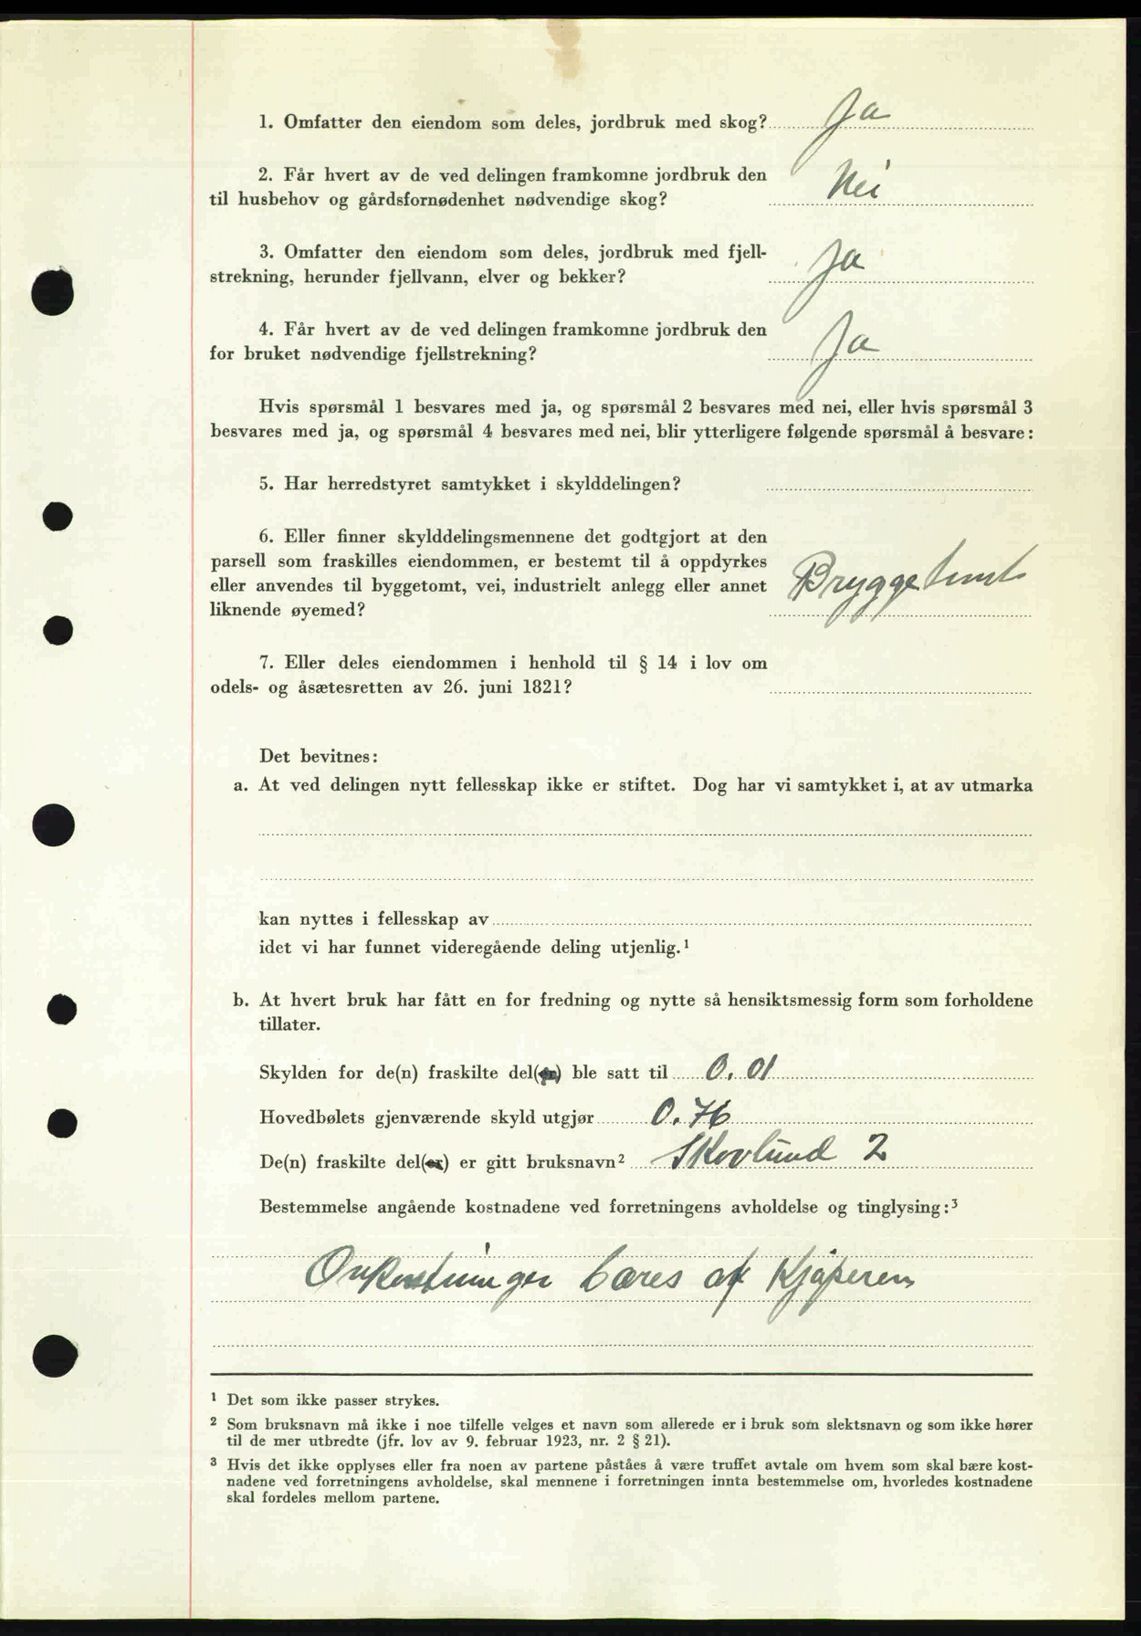 1. Omfatter den eiendom som deles, jordbruk med skog? Ja
2. Får hvert av de ved delingen framkomne jordbruk den
til husbehov og gårdsfornødenhet nødvendige skog? Nei
3. Omfatter den eiendom som deles, jordbruk med fjell-
strekning, herunder fjellvann, elver og bekker? Ja
4. Får hvert av de ved delingen framkomne jordbruk den
for bruket nødvendige fjellstrekning? Ja
Hvis spørsmål 1 besvares med ja, og spørsmål 2 besvares med nei, eller hvis spørsmål 3
besvares med ja, og spørsmål 4 besvares med nei, blir ytterligere følgende spørsmål å besvare:
5. Har herredstyret samtykket i skylddelingen?
6. Eller finner skylddelingsmennene det godtgjort at den
parsell som fraskilles eiendommen, er bestemt til å oppdyrkes
eller anvendes til byggetomt, vei, industrielt anlegg eller annet
liknende øyemed?
7. Eller deles eiendommen i henhold til § 14 i lov om
odels- og åsætesretten av 26. juni 1821?
Det bevitnes:
a. At ved delingen nytt fellesskap ikke er stiftet. Dog har vi samtykket i, at av utmarka
kan nyttes i fellesskap av
idet vi har funnet videregående deling utjenlig.¹
b. At hvert bruk har fått en for fredning og nytte så hensiktsmessig form som forholdene
tillater.
Skylden for de(n) fraskilte del(er) ble satt til 0.01
Hovedbølets gjenværende skyld utgjør 0.76
De(n) fraskilte del(er) er gitt bruksnavn² Skovlund 2
Bestemmelse angående kostnadene ved forretningens avholdelse og tinglysing:³
bæres af Kjøperen
¹ Det som ikke passer strykes.
² Som bruksnavn må ikke i noe tilfelle velges et navn som allerede er i bruk som slektsnavn og som ikke hører
til de mer utbredte (jfr. lov av 9. februar 1923, nr. 2 § 21).
³ Hvis det ikke opplyses eller fra noen av partene påståes å være truffet avtale om hvem som skal bære kost-
nadene ved forretningens avholdelse, skal mennene i forretningen innta bestemmelse om, hvorledes kostnadene
skal fordeles mellom partene.